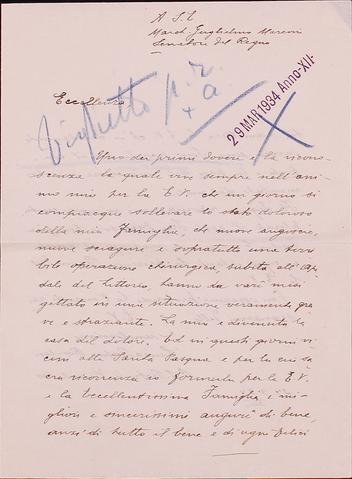 A S. E
March. Guglielmo Marconi
Senatore del Regno
29 MAR 1934 Anno XII
Eccellenza
Viglietto p. r.
+ a
Uno dei primi doveri e la ricono-
scenza la quale vive sempre nell'ani
mo mio per la E.V. che un giorno si
compiacque sollevare lo stato doloroso
della mia famiglia, che nuove angoscie,
nuove sciagure e sopratutto una terri
bile operazione chirurgica, subita all'Ospe
dale del Littorio, hanno da vari mesi
gettato in una situazione veramente gra
ve e straziante. La mia e divenuta la
casa del dolore. Ed in questi giorni vi
cini alla Santa Pasqua e per la cui sa
cra ricorrenza io formulo per la E.V.
e la Eccellentissima Famiglia i mi-
gliori e sincerissimi auguri di bene,
anzi di tutto il bene e di ogni felici